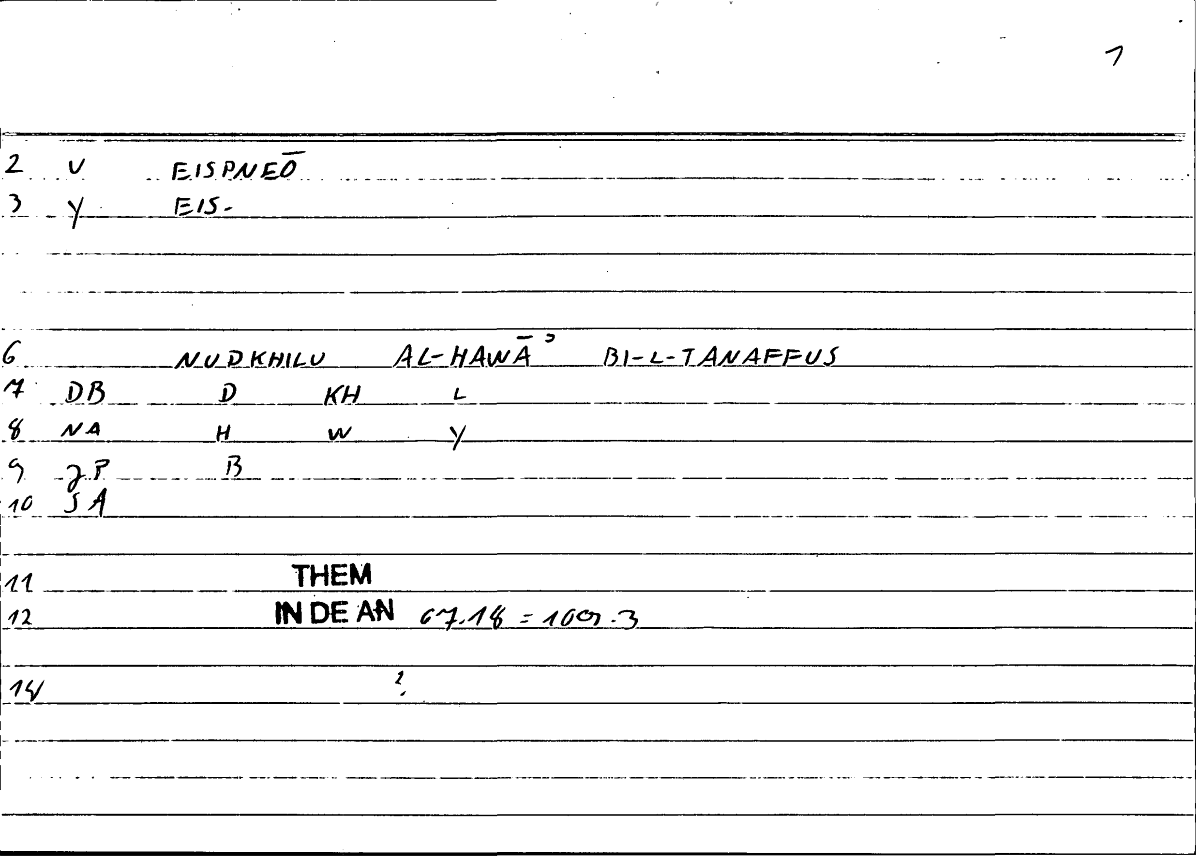 1
2 V EISPNEŌ
3 Y EIS-
6 NUDKHILU AL-HAWĀʾ BI-L-TANAFFUS
7 DB D KH L
8 NA H W Y
9 ZP B
10 SA
11 THEM
12 IN DE AN 67.18 = 109.3
14 ?